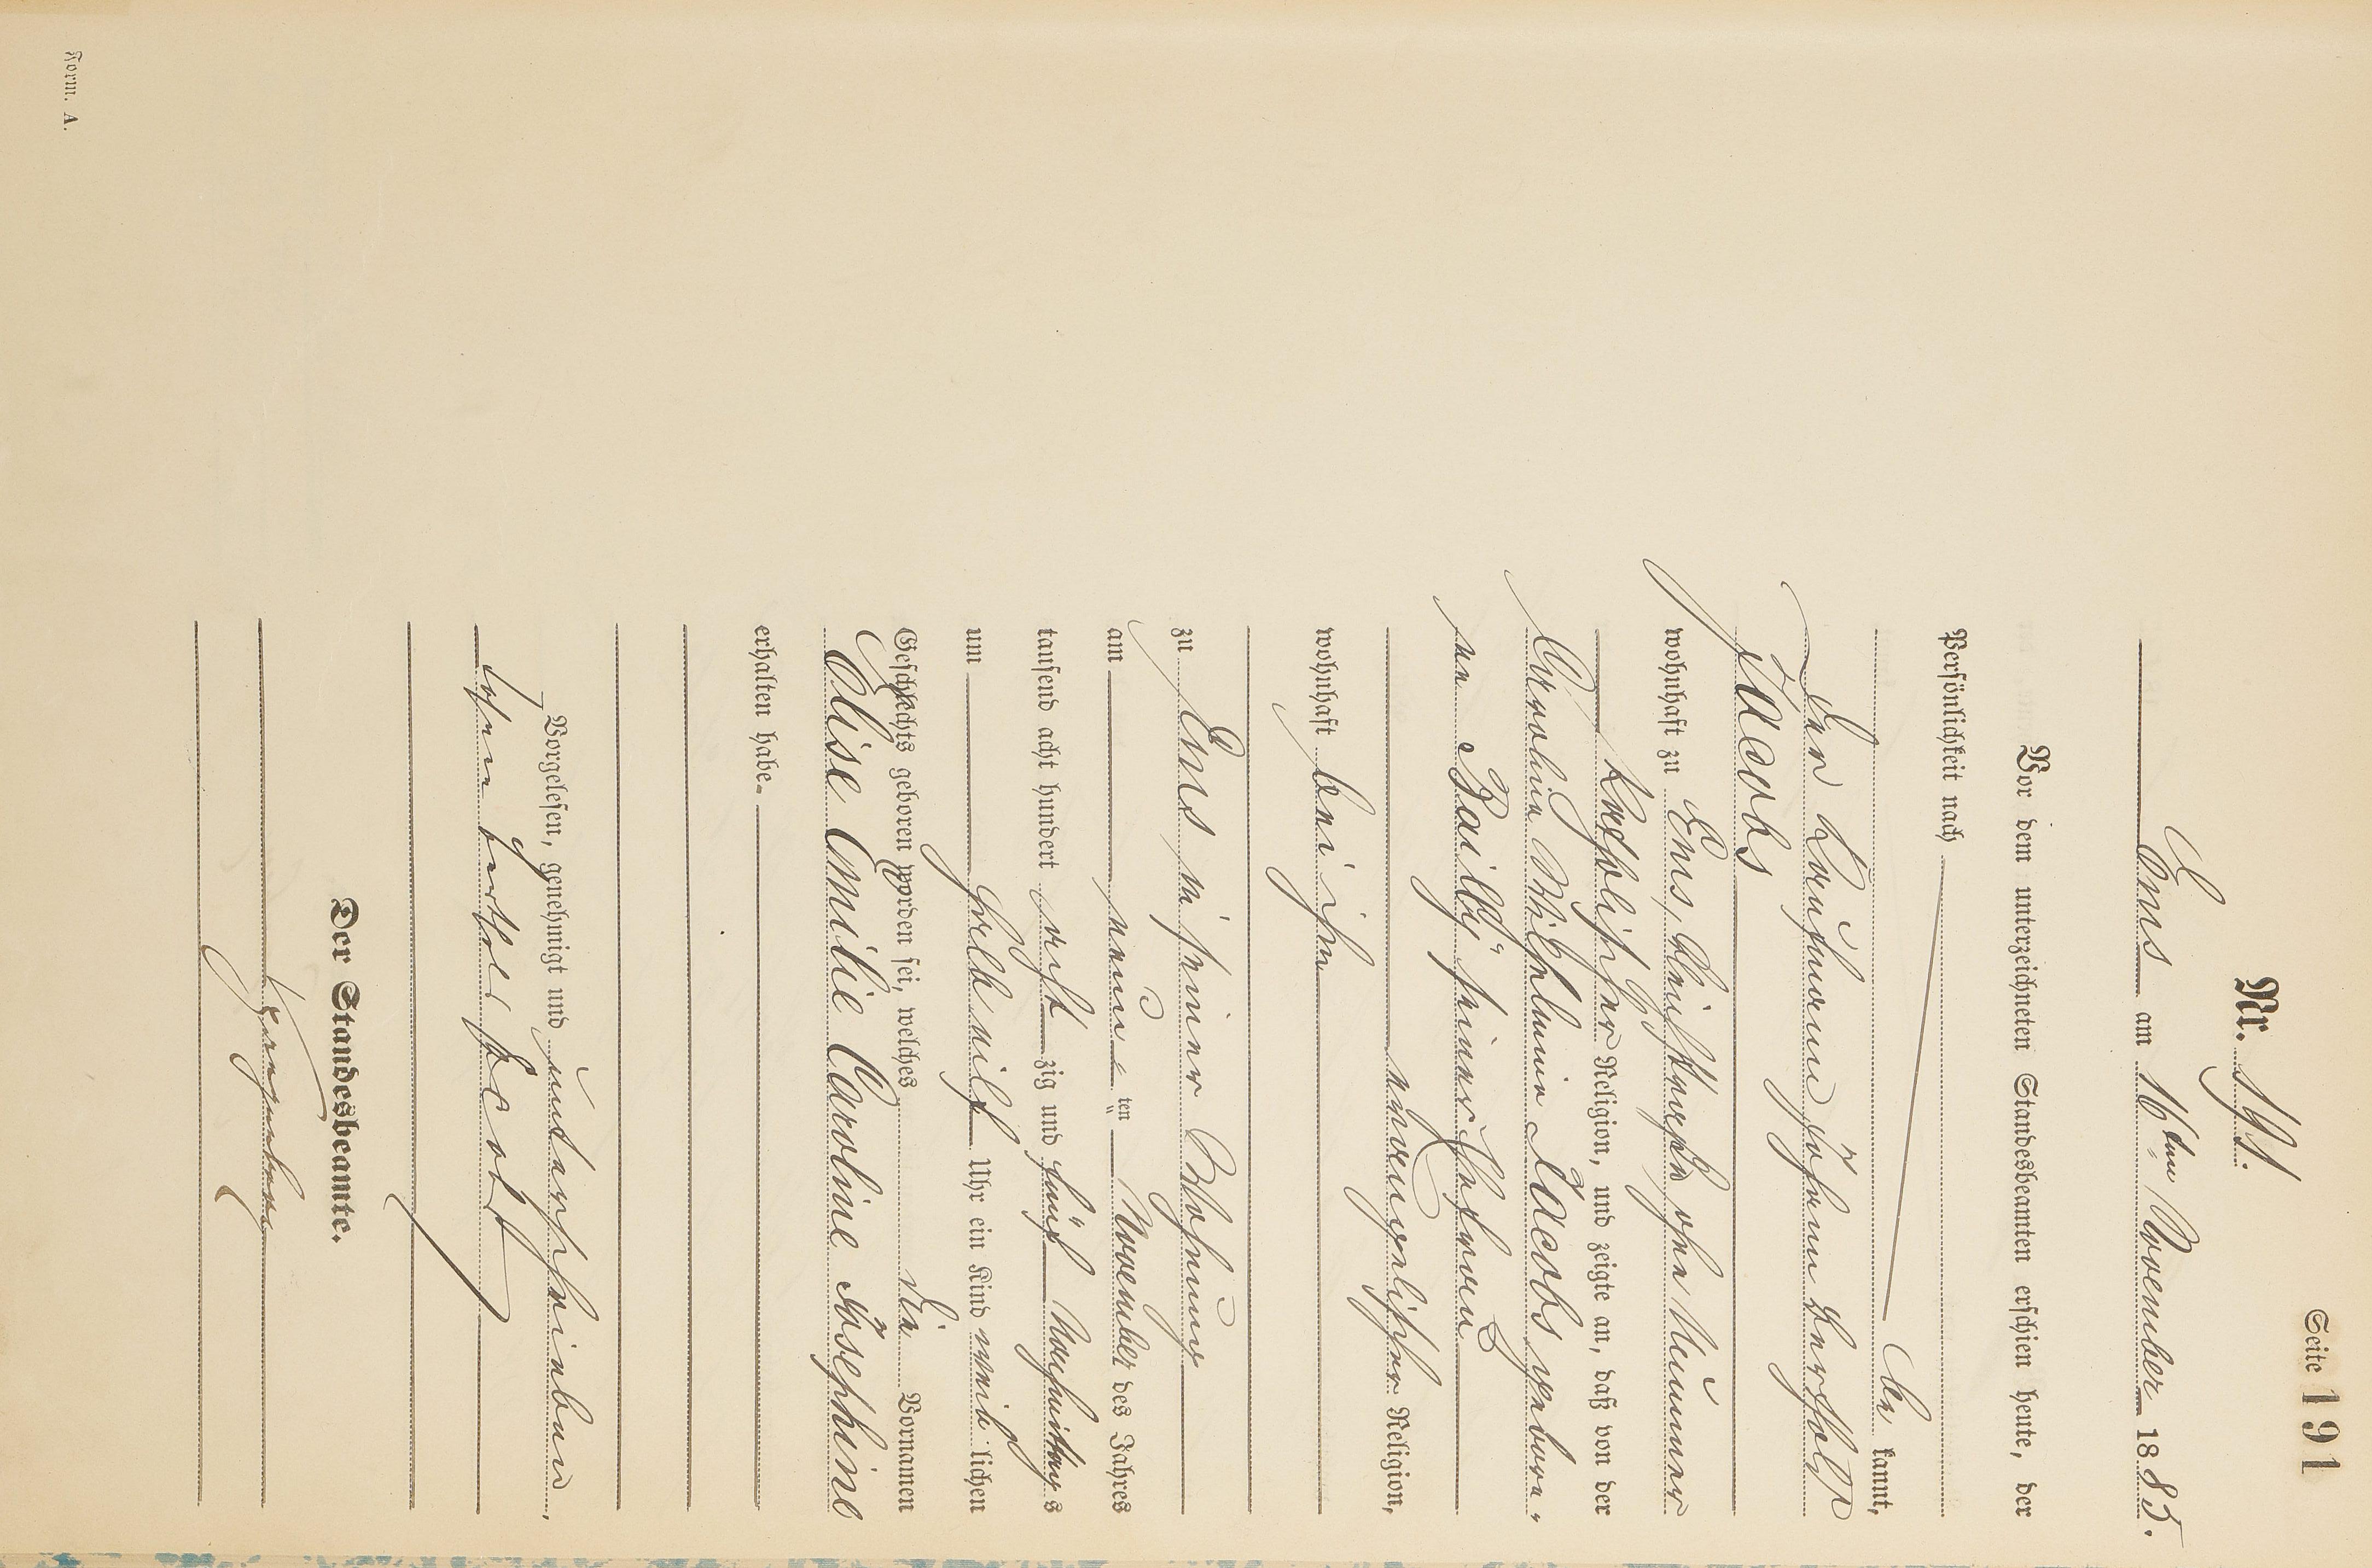 Seite 191
Nr. 191.
Ems am 16ten November 1885.
Vor dem unterzeichneten Standesbeamten erschien heute, der
Persönlichkeit nach
be kannt,
der Kaufmann Johann Berthold
Jacobs
wohnhaft zu Ems, Christstraße ohne Nummer
katholischer Religion, und zeigte an, daß von der
Caroline Wilhelmine Jacobs gebore-
ne Bailly seiner Ehefrau
evangelischer Religion,
wohnhaft bei ihm
zu Ems in seiner Wohnung
am neun ten November des Jahres
tausend acht hundert acht zig und fünf Nachmittags
um halb Uhr ein Kind weib lichen
Geschlechts geboren worden sei, welches die Vornamen
Elise Emilie Caroline Josephine
erhalten habe.
Vorgelesen, genehmigt und unterschrieben
Johann Berthold Jacobs
Der Standesbeamte.
Form. A.